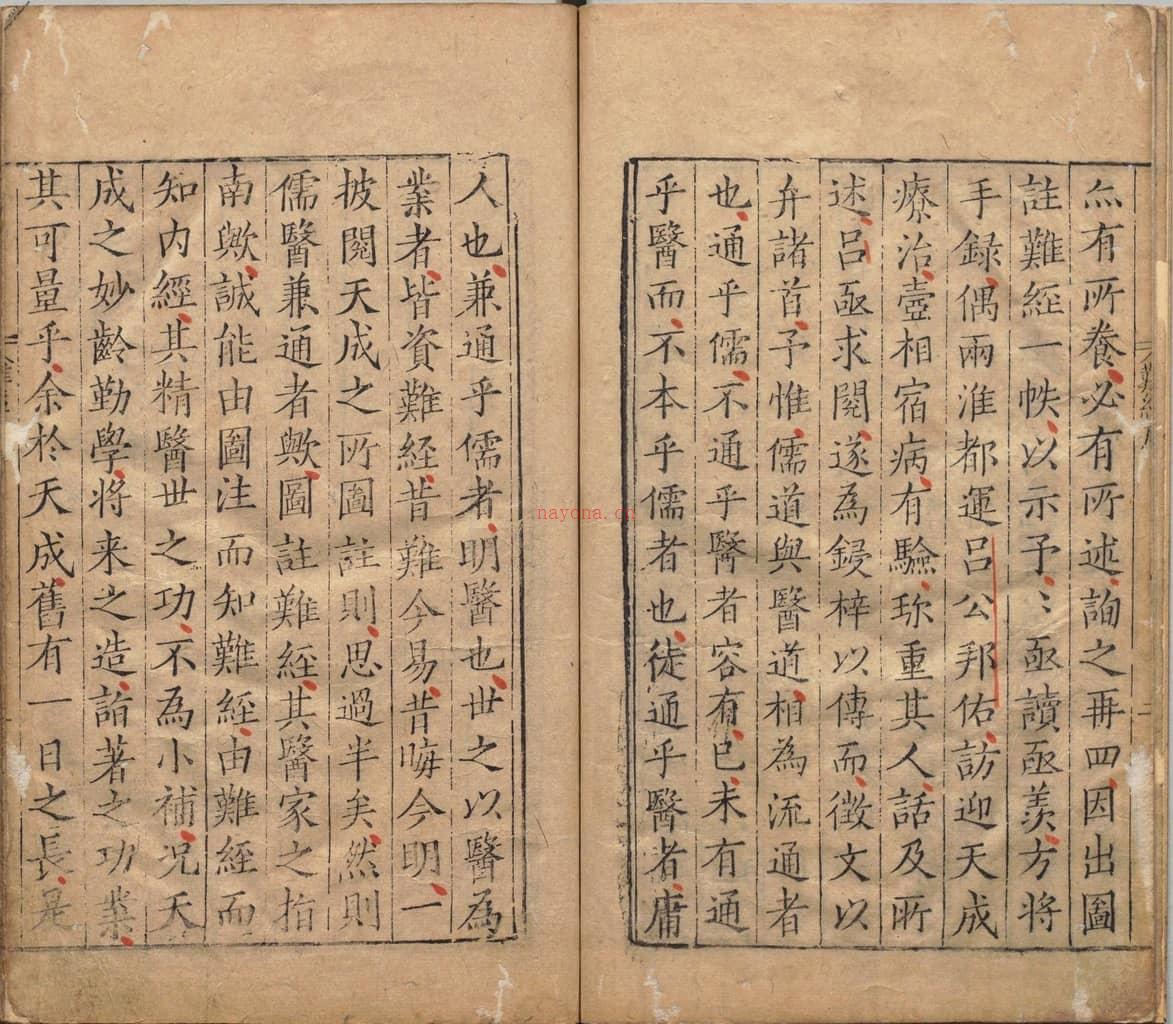 亦有所養必有所述詢之再四因出圖
註難經一帙以示予〻亟讀亟羨方將
手録偶兩淮都運吕公邦佑訪迎天成
療治臺相宿病有驗珎重其人話及所
述吕亟求閱遂為鋟梓以傳而徵文以
弁諸首予惟儒道與醫道相為流通者
也通乎儒不通乎醫者容有已未有通
乎醫而不本乎儒者也徒通乎醫者庸
人也兼通乎儒者明醫也世之以醫為
業者皆資難經昔難今易昔晦今明一
披閱天成之所圖註則思過半矣然則
儒醫兼通者歟圖註難經其醫家之指
南歟誠能由圖注而知難經由難經而
知内經其精醫世之功不為小補况天
成之妙齡勤學将来之造詣著之功業
其可量乎余於天成舊有一日之長是
nayona.cn